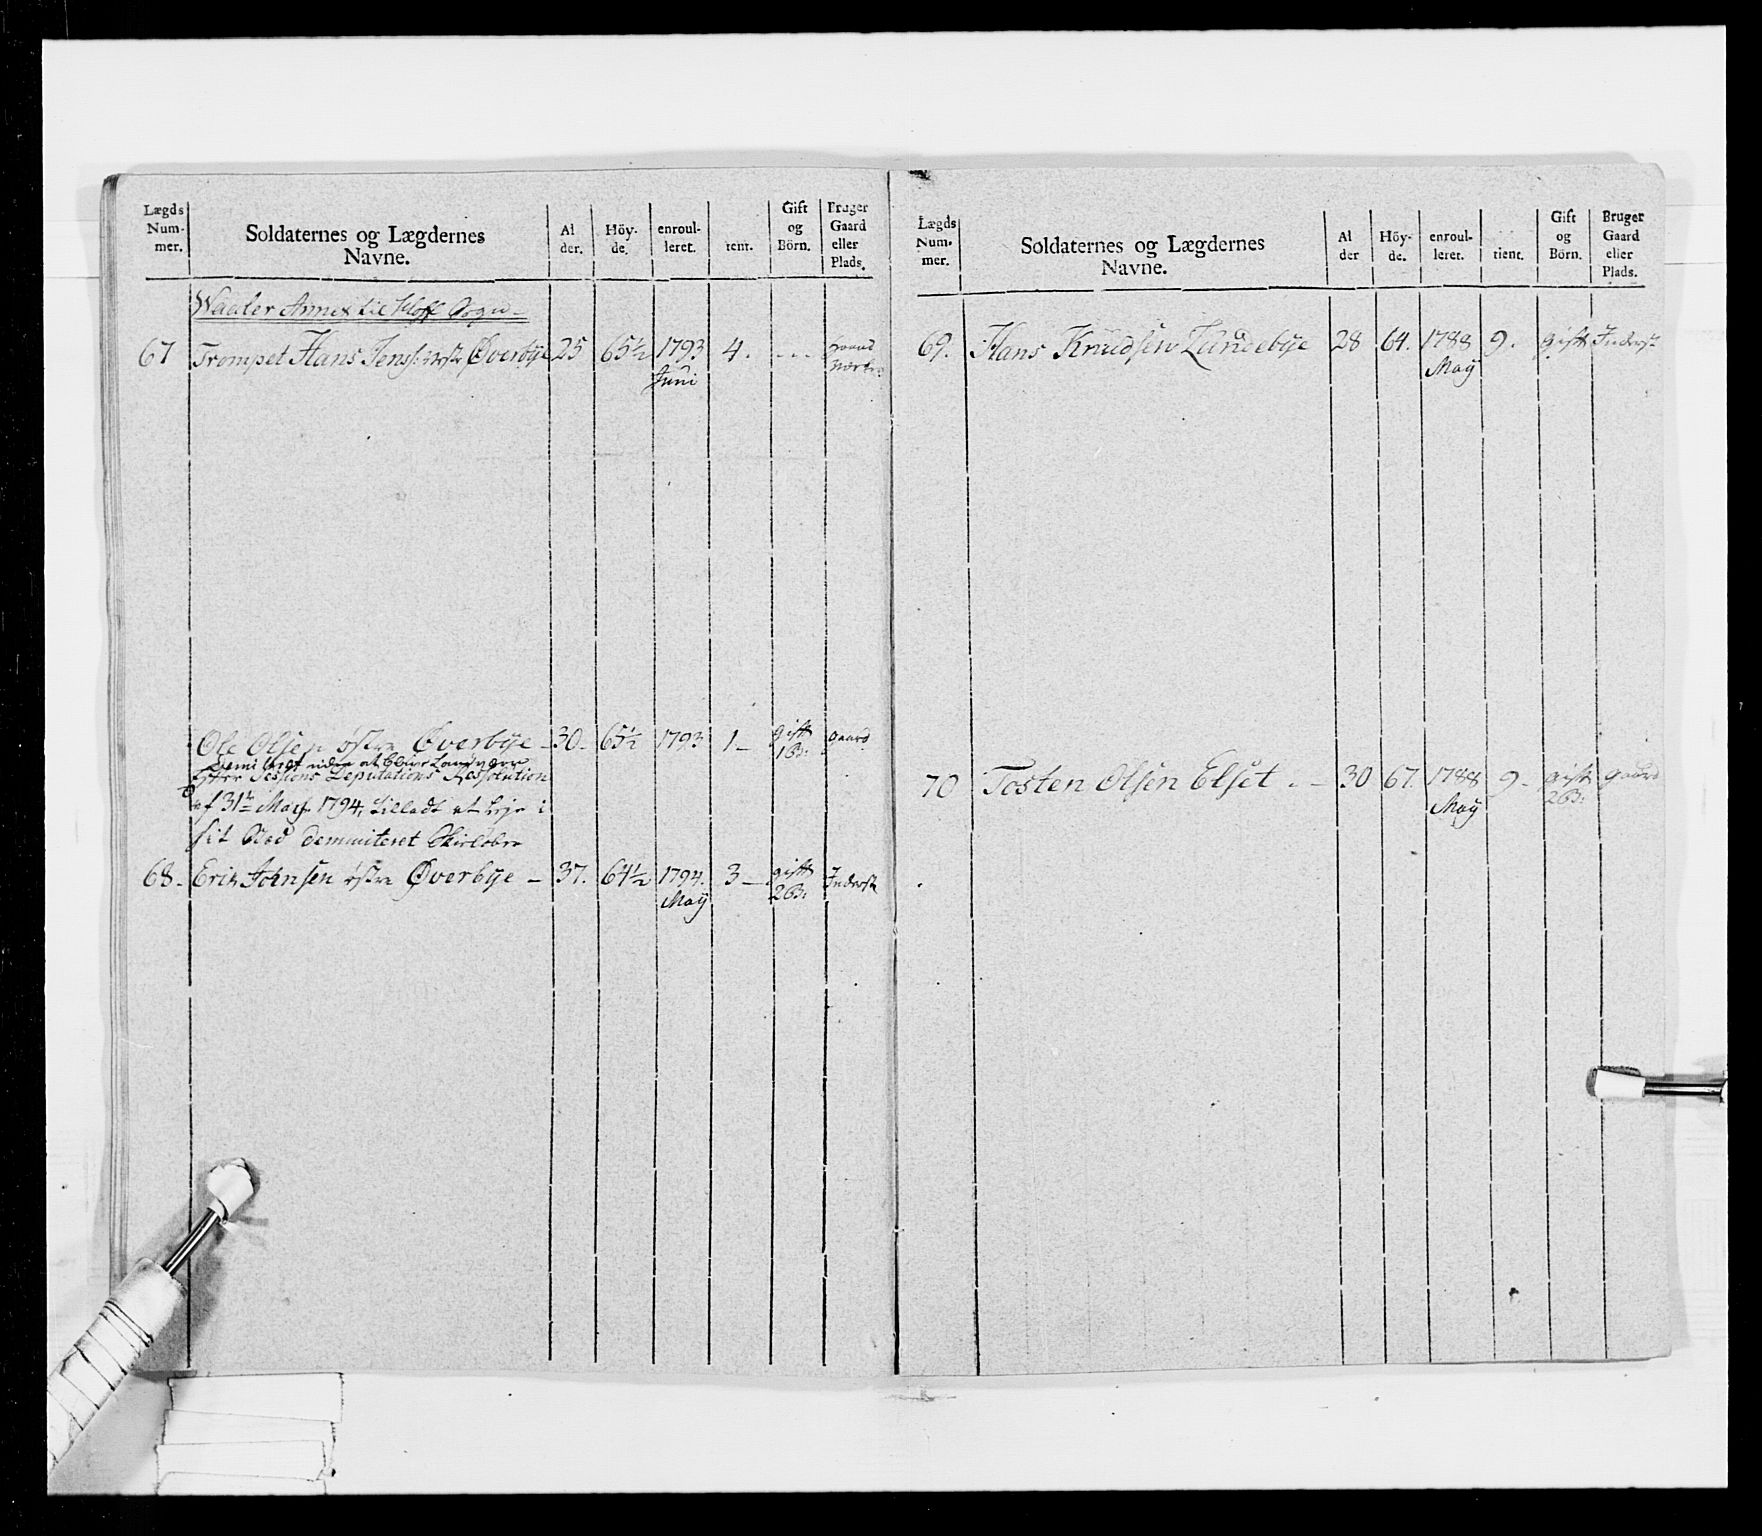 Lægds Num- mer.
Soldaternes og Lægdernes Navne.
Al der.
Höy- de.
enroul- leret.
tient.
Gift og Börn.
Bruger Gaard eller Plads.
Waaler Annex til Hoff Sogn
67 Trompet Hans Jens: østre Øverbye 25 65½ 1793 4. - - - gaard
Juni
Ole Olsen østre Øverbye - 30 - 65½ 1793 1 - gift gaard
1 B:
Efter Sessions Deputations Ressolution
af 31te May 1794, tilladt at leje i
sit Sted demmiteret Skieløber
68. Erik Johnsen østre Øverbye - 37. 64½ 1794. 3 - gift Inderst
May 2 B:
Lægds Num- mer.
Soldaternes og Lægdernes Navne.
Al der
Höy- de.
enroul- leret.
tient.
Gift og Börn.
Bruger Gaard eller Plads.
69. Hans Knudsen Lundebye 28 64. 1788 9. gift Inderst
May
70 Tosten Olsen Elset . - 30 67. 1788 9 - gift gaard
May 2 B: